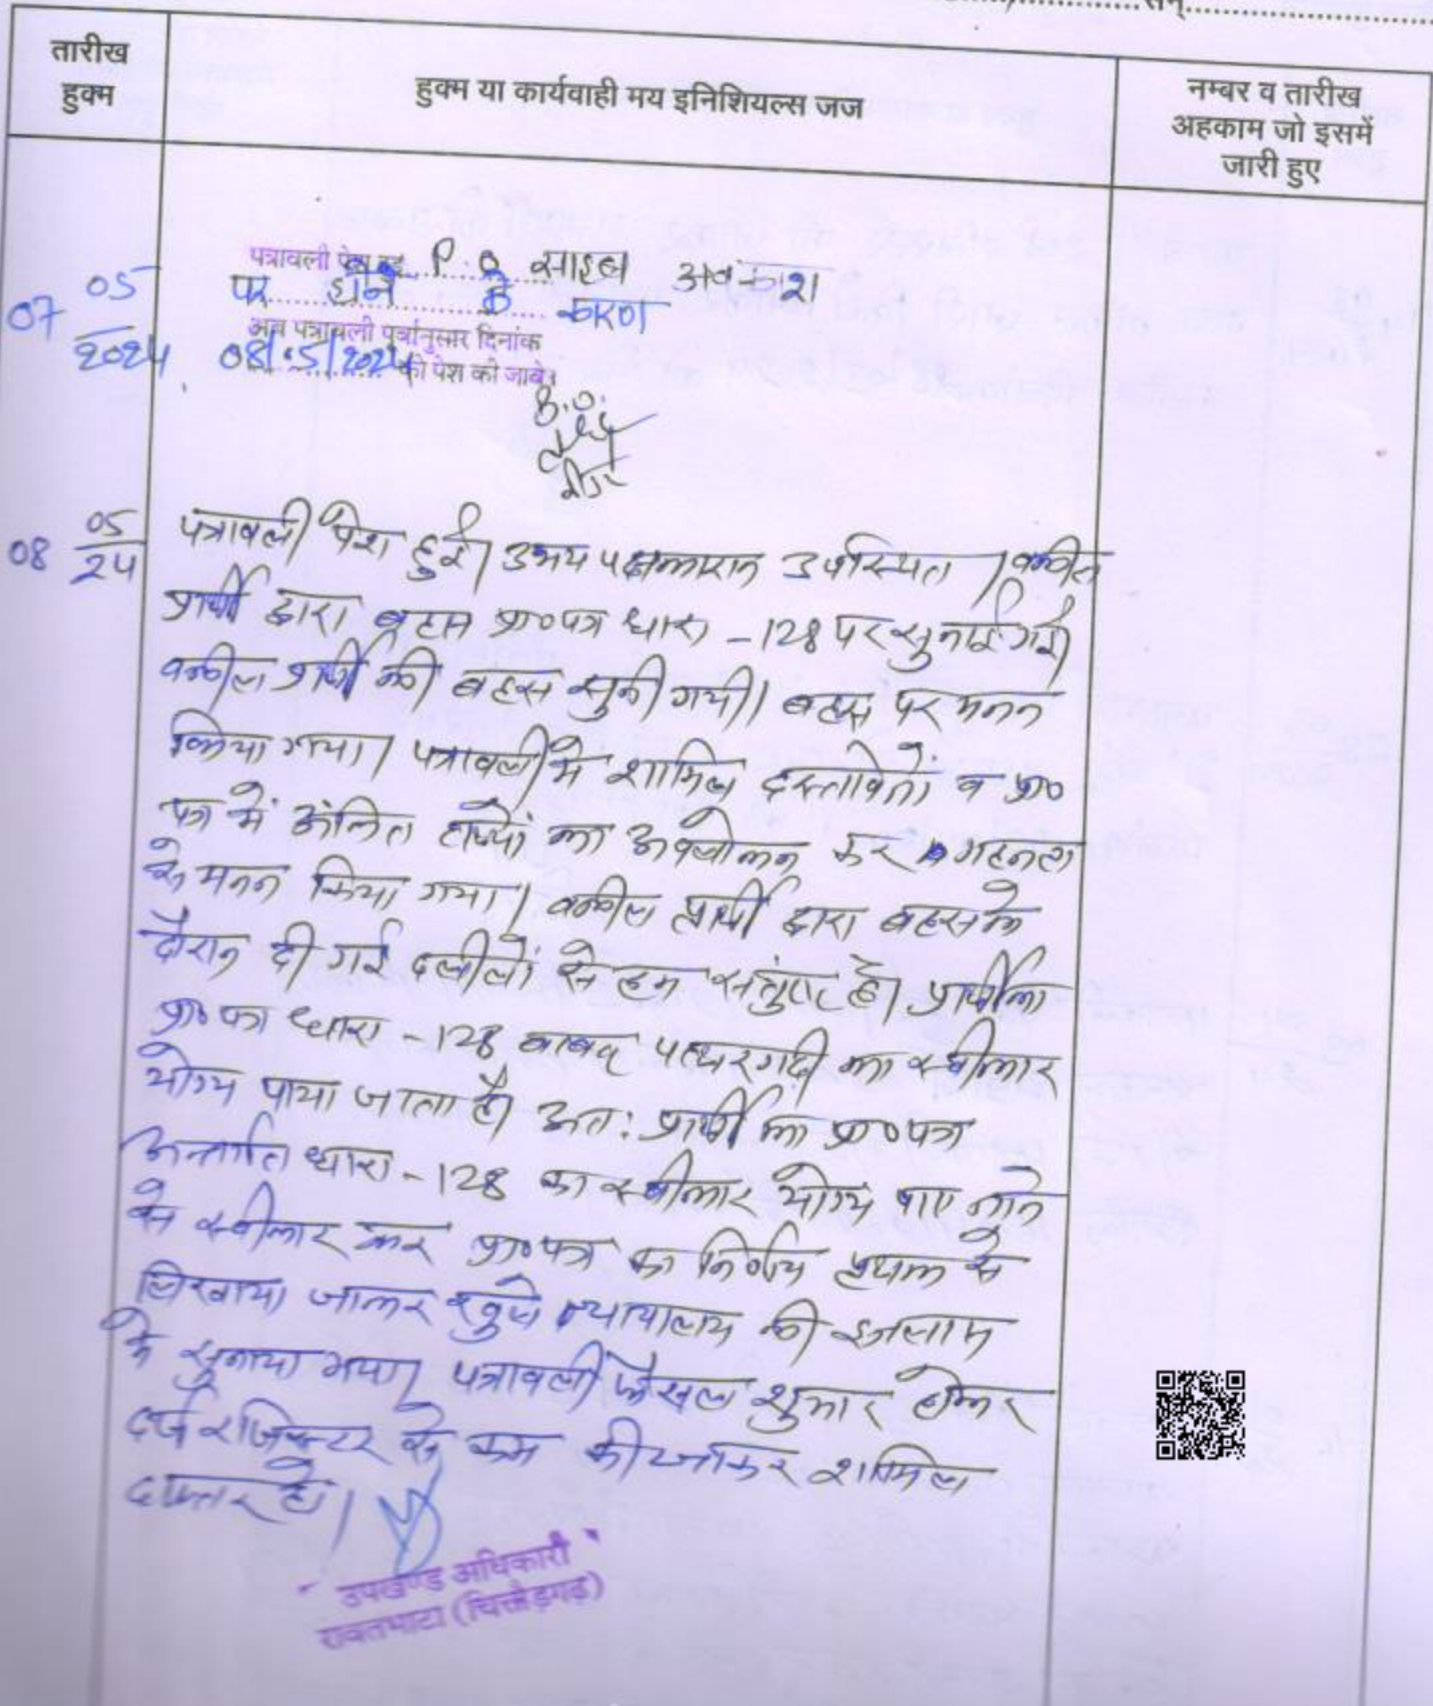 सन्
तारीख
हुक्म
हुक्म या कार्यवाही मय इनिशियल्स जज
नम्बर व तारीख
अहकाम जो इसमें
जारी हुए
07 05/2024
पत्रावली पेश हुई P.O साहब अवकाश
पर होने के कारण
अब पत्रावली पूर्वानुसार दिनांक
08/5/2024 को पेश की जावे।
B.O.
08 05/24
पत्रावली पेश हुई। उभय पक्षकारान उपस्थित। वकील
प्रार्थी द्वारा बहस प्रा०पत्र धारा -128 पर सुनाई गई।
वकील प्रार्थी की बहस सुनी गयी। बहस पर मनन
किया गया। पत्रावली में शामिल दस्तावेजों व प्रा०
पत्र में अंकित तथ्यों का अवलोकन कर गहनता
से मनन किया गया। वकील प्रार्थी द्वारा बहस के
दौरान दी गई दलीलों से हम संतुष्ट है। प्रार्थी का
प्रा०पत्र धारा -128 बाबद पत्थरगढी का स्वीकार
योग्य पाया जाता है। अत: प्रार्थी का प्रा०पत्र
अन्तर्गत धारा -128 का स्वीकार योग्य पाए जाने
से स्वीकार कर प्रा०पत्र का निर्णय पृथक से
लिखाया जाकर खुले न्यायालय की इजलास
में सुनाया गया। पत्रावली फैसल शुमार होकर
दर्ज रजिस्टर से कम की जाकर शामिल
दफ्तर हो।
उपखण्ड अधिकारी
रावतभाटा (चित्तौड़गढ़)